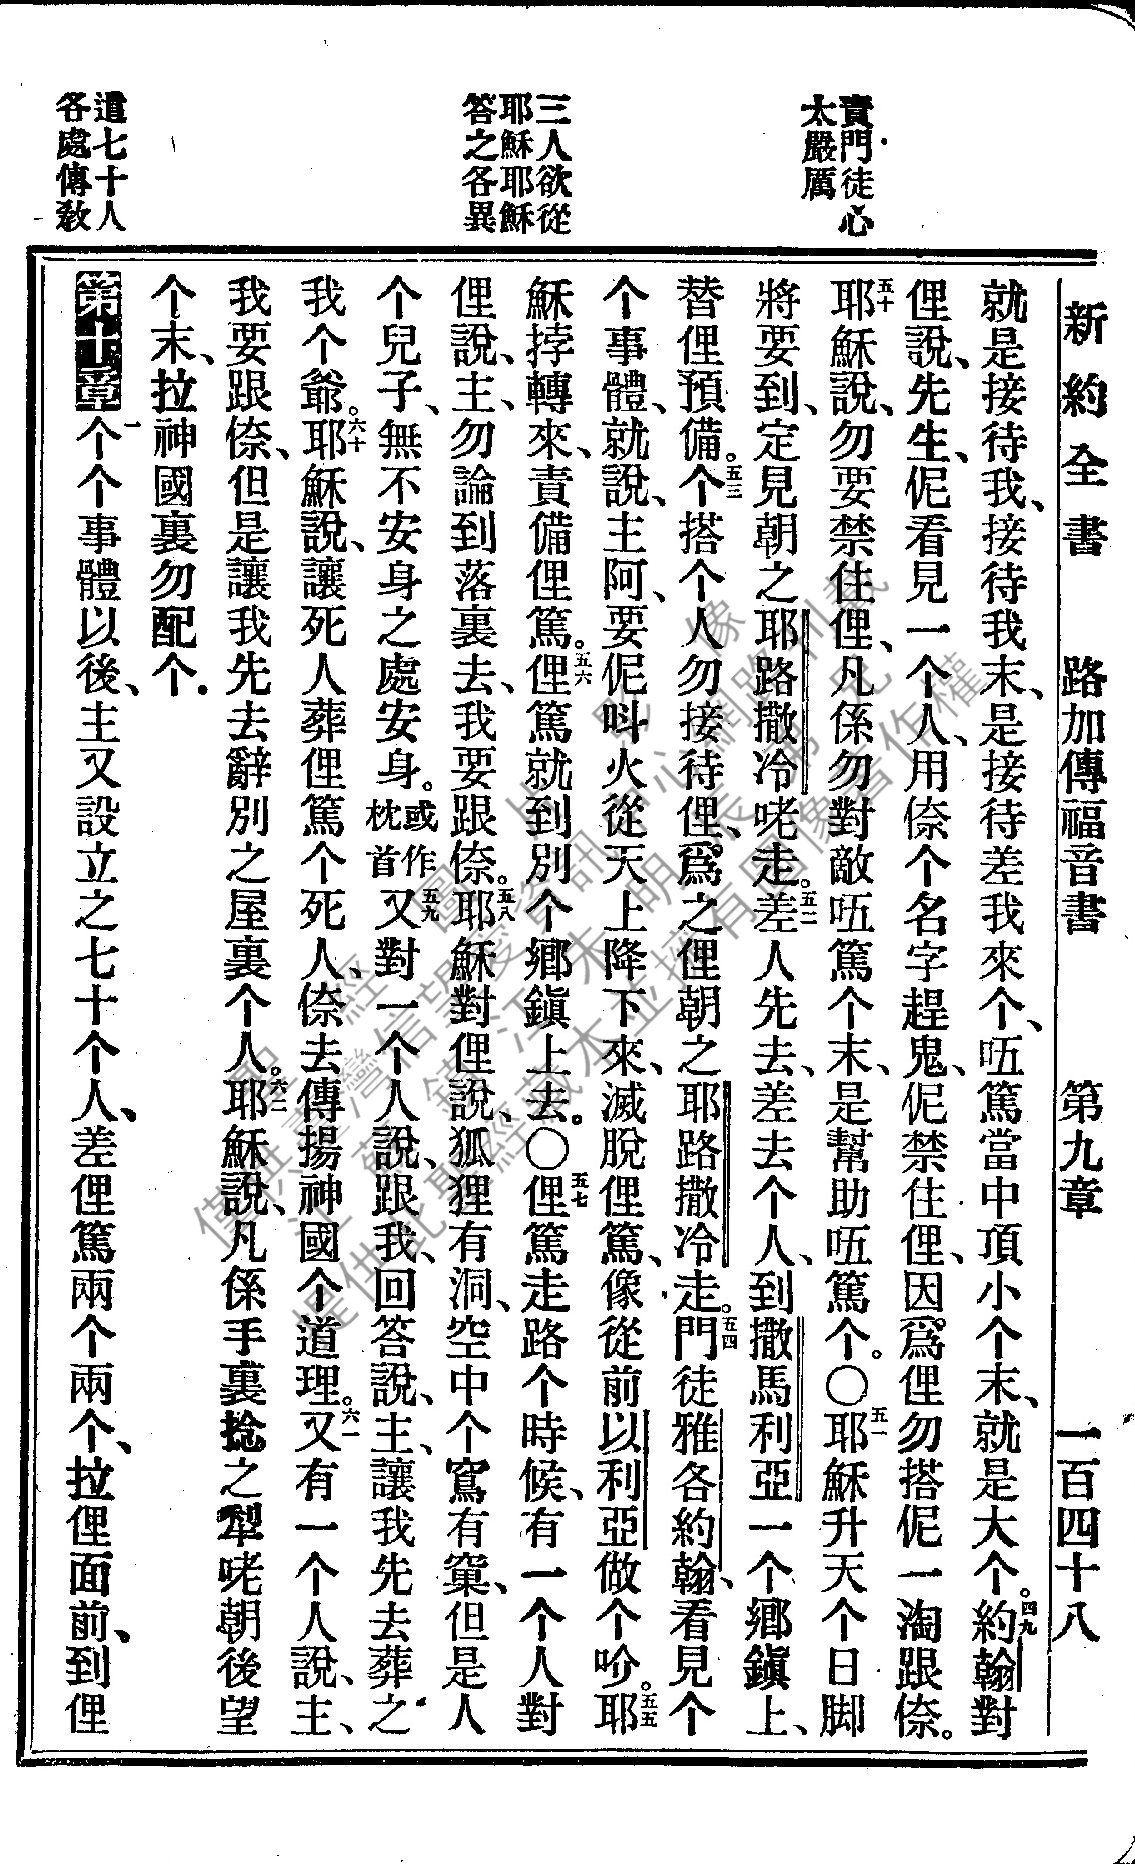 新約全書　路加傳福音書　第九章　一百四十八
責門徒心
太嚴厲
三人欲從
耶穌耶穌
答之各異
遣七十人
各處傳教
就是接待我、接待我末、是接待差我來个、㕶篤當中頂小个末、就是大个。四九約翰對
俚說、先生、伲看見一个人、用倷个名字趕鬼、伲禁住俚、因爲俚勿搭伲一淘跟倷。
五十耶穌說、勿要禁住俚、凡係勿對敵㕶篤个末、是幫助㕶篤个。〇五一耶穌升天个日脚
將要到、定見朝之耶路撒冷咾走。五二差人先去、差去个人、到撒馬利亞一个鄉鎭上、
替俚預備。五三个搭个人勿接待俚、爲之俚朝之耶路撒冷走。五四門徒雅各約翰、看見个
个事體、就說、主阿、要伲呌火從天上降下來、滅脫俚篤、像從前以利亞做个吤。五五耶
穌挬轉來、責備俚篤。五六俚篤就到別个鄉鎭上去。〇五七俚篤走路个時候、有一个人對
俚說、主、勿論到落裏去、我要跟倷。五八耶穌對俚說、狐狸有洞、空中个窵有窠、但是人
个兒子、無不安身之處安身。或作枕首五九又對一个人說、跟我、回答說、主、讓我先去葬之
我个爺。六十耶穌說、讓死人葬俚篤个死人、倷去傳揚神國个道理。六一又有一个人說、主、
我要跟倷、但是讓我先去辭別之屋裏个人。六二耶穌說、凡係手裏捻之犁咾朝後望
个末、拉神國裏勿配个.
第十章 一个个事體以後、主又設立之七十个人、差俚篤兩个兩个、拉俚面前、到俚